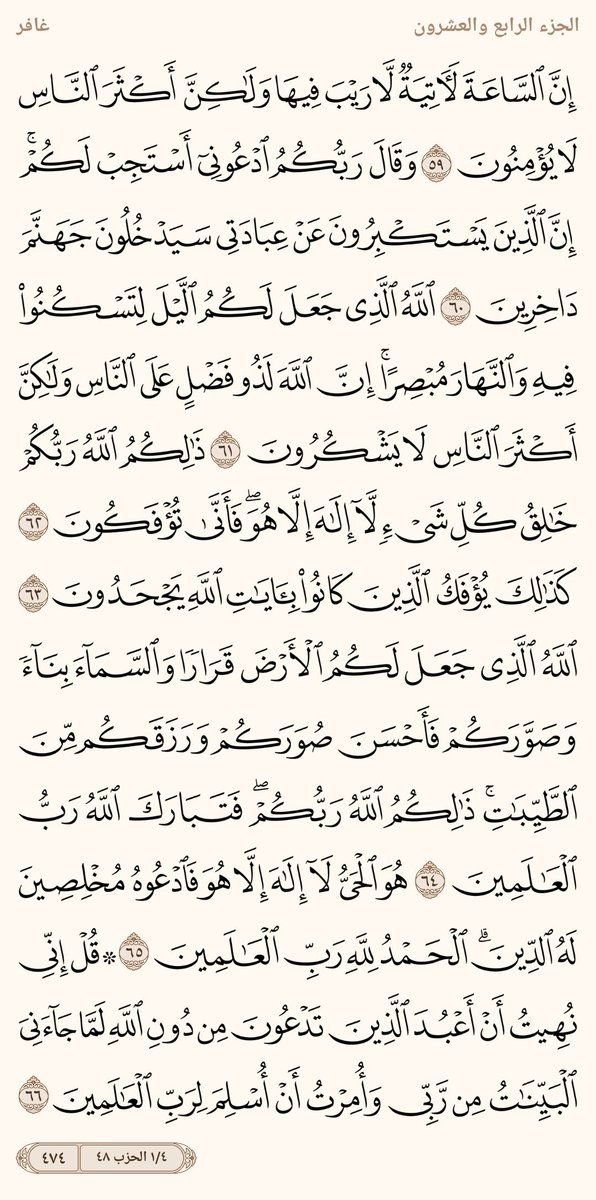 الجزء الرابع والعشرون
غافر
إِنَّ ٱلسَّاعَةَ لَأٓتِيَةٌ لَّا رَيْبَ فِيهَا وَلَٰكِنَّ أَكْثَرَ ٱلنَّاسِ
لَا يُؤْمِنُونَ ٥٩ وَقَالَ رَبُّكُمُ ٱدْعُونِىٓ أَسْتَجِبْ لَكُمْ ۚ
إِنَّ ٱلَّذِينَ يَسْتَكْبِرُونَ عَنْ عِبَادَتِى سَيَدْخُلُونَ جَهَنَّمَ
دَاخِرِينَ ٦٠ ٱللَّهُ ٱلَّذِى جَعَلَ لَكُمُ ٱلَّيْلَ لِتَسْكُنُوا۟
فِيهِ وَٱلنَّهَارَ مُبْصِرًا ۚ إِنَّ ٱللَّهَ لَذُو فَضْلٍ عَلَى ٱلنَّاسِ وَلَٰكِنَّ
أَكْثَرَ ٱلنَّاسِ لَا يَشْكُرُونَ ٦١ ذَٰلِكُمُ ٱللَّهُ رَبُّكُمْ
خَٰلِقُ كُلِّ شَىْءٍ لَّآ إِلَٰهَ إِلَّا هُوَ ۖ فَأَنَّىٰ تُؤْفَكُونَ ٦٢
كَذَٰلِكَ يُؤْفَكُ ٱلَّذِينَ كَانُوا۟ بِـَٔايَٰتِ ٱللَّهِ يَجْحَدُونَ ٦٣
ٱللَّهُ ٱلَّذِى جَعَلَ لَكُمُ ٱلْأَرْضَ قَرَارًا وَٱلسَّمَآءَ بِنَآءً
وَصَوَّرَكُمْ فَأَحْسَنَ صُوَرَكُمْ وَرَزَقَكُم مِّنَ
ٱلطَّيِّبَٰتِ ۚ ذَٰلِكُمُ ٱللَّهُ رَبُّكُمْ ۖ فَتَبَارَكَ ٱللَّهُ رَبُّ
ٱلْعَٰلَمِينَ ٦٤ هُوَ ٱلْحَىُّ لَآ إِلَٰهَ إِلَّا هُوَ فَٱدْعُوهُ مُخْلِصِينَ
لَهُ ٱلدِّينَ ۗ ٱلْحَمْدُ لِلَّهِ رَبِّ ٱلْعَٰلَمِينَ ٦٥ ۞ قُلْ إِنِّى
نُهِيتُ أَنْ أَعْبُدَ ٱلَّذِينَ تَدْعُونَ مِن دُونِ ٱللَّهِ لَمَّا جَآءَنِىَ
ٱلْبَيِّنَٰتُ مِن رَّبِّى وَأُمِرْتُ أَنْ أُسْلِمَ لِرَبِّ ٱلْعَٰلَمِينَ ٦٦
١/٤ الحزب ٤٨
٤٧٤